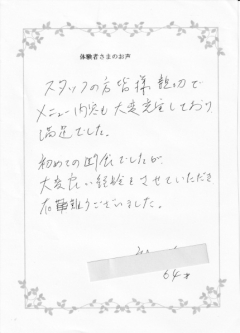 体験者さまのお声
スタッフの方皆様親切で
メニュー内容も大変充実しており
満足でした。
初めての
でしたが
大変良い経験をさせていただき
有難うございました。
64才